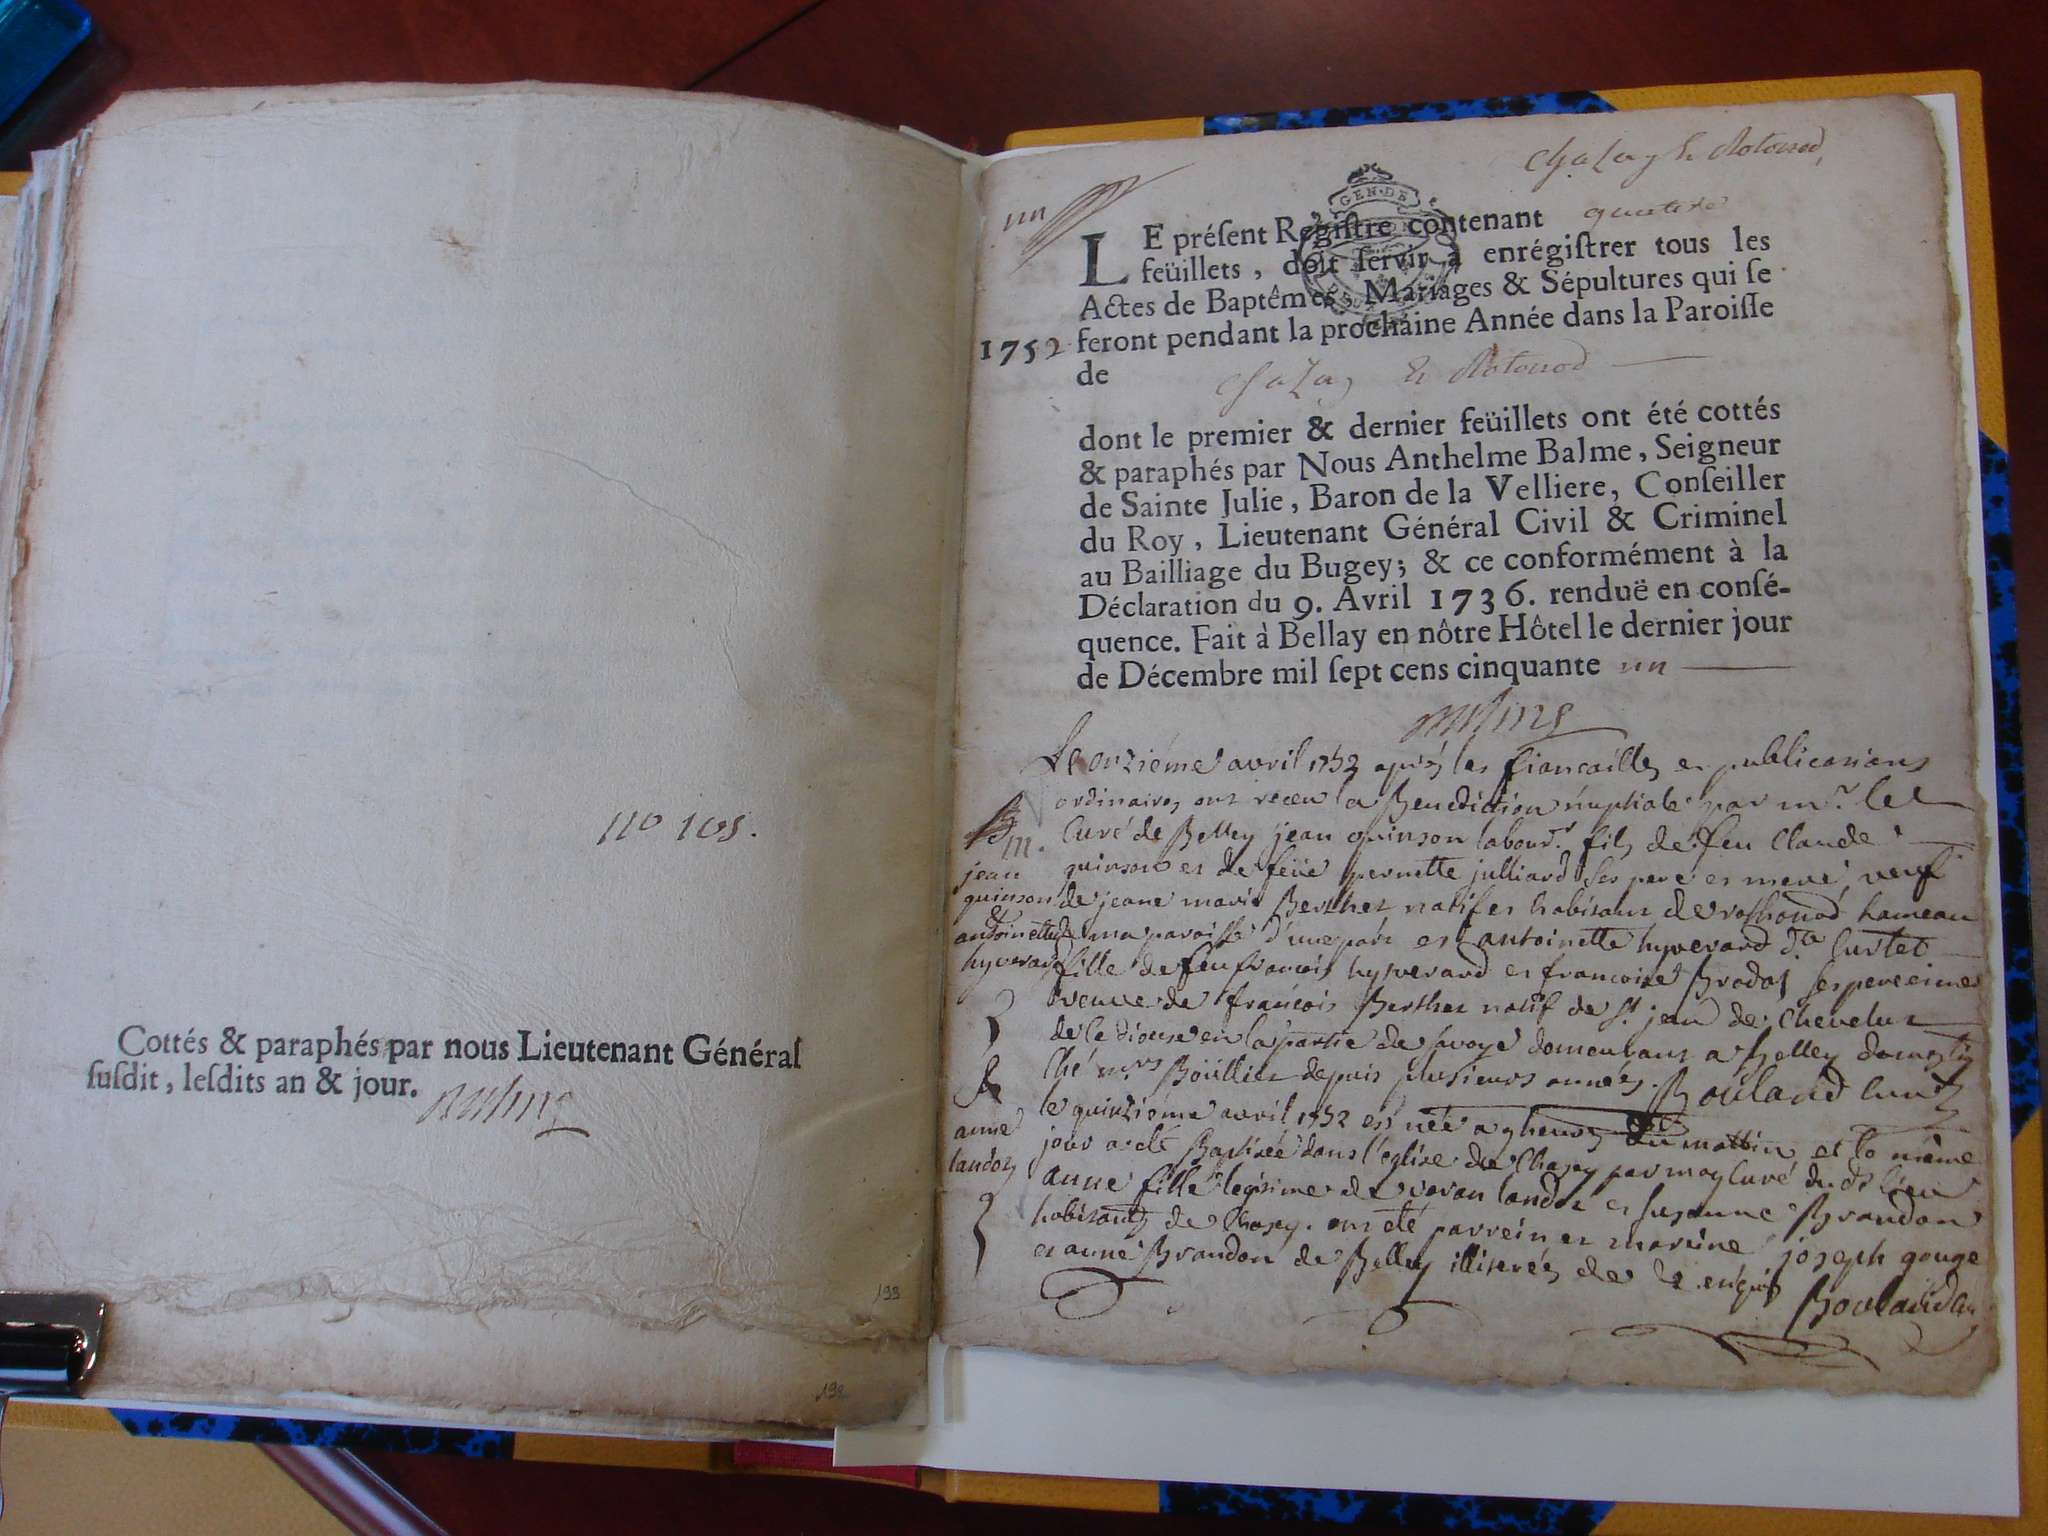 no 105.
Cottés & paraphés par nous Lieutenant Général
susdit, lesdits an & jour.
199
198
Chazey & Rotonod
un
GEN. DE
LE présent Registre contenant quatre
feüillets, doit servir à enrégistrer tous les
Actes de Baptêmes, Mariages & Sépultures qui se
feront pendant la prochaine Année dans la Paroisse
1752
de Chazey & Rotonod
dont le premier & dernier feüillets ont été cottés
& paraphés par Nous Anthelme Balme, Seigneur
de Sainte Julie, Baron de la Velliere, Conseiller
du Roy, Lieutenant Général Civil & Criminel
au Bailliage du Bugey; & ce conformément à la
Déclaration du 9. Avril 1736. renduë en consé-
quence. Fait à Bellay en nôtre Hôtel le dernier jour
de Décembre mil sept cens cinquante un
Le onziéme avril 1752 aprés les fiancailles et publications
ordinaires ont receu la Benediction nuptiale par mr. le
Curé de Belley jean quinson labourr. fils de feu Claude
quinson et de feüe pernette julliard ses pere et mere, veuf
de jeane marie Berthet natif et habitant de rothonod hameau
de ma paroisse d'une part et antoinette hyverard dte Curtet
fille de feu francois hyverard et francoise Brodot ses pere et mere
veuve de francois Berthet natif de st. jean de Chevelut
de ce diocese en la partie de savoye demeurant a Belley domestiq
ché mrs Boüillier depuis plusieurs années. Bouland curé
m.
jean
quinson
et
antoinette
hyverard
le quinziéme avril 1752 est née a 9 heures du mattin et le même
jour a eté Baptisée dans l'eglise de Chazey par moy Curé dudt lieu
anne fille legitime de landoz et susanne Brandon
habitants de Chazey. ont eté parrein et mareine joseph gouge
et anne Brandon de Belley illiterés de ce enquis Bouland Cu
anne
landoz